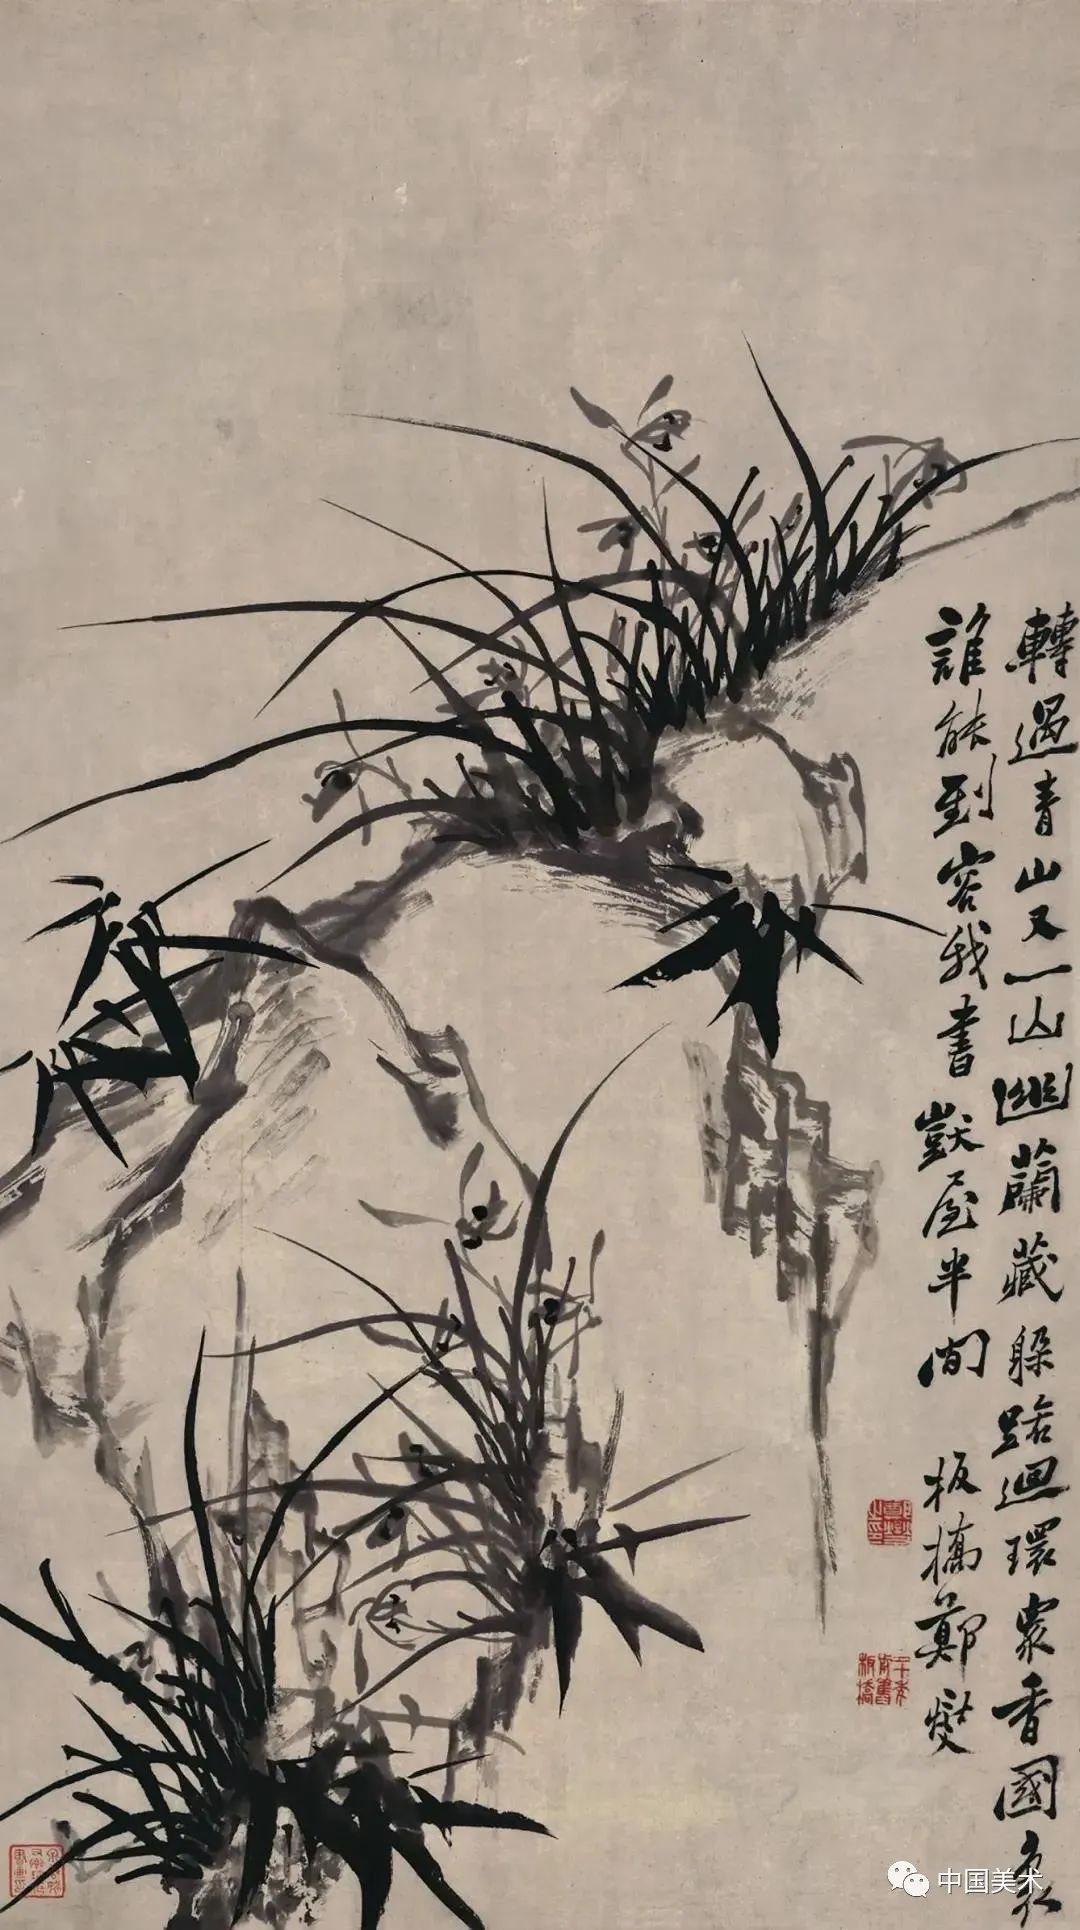 轉過青山又一山幽蘭藏躲路迴環衆香國裏
誰能到容我書獃屋半間 板橋鄭燮
二十年前舊板橋
中国美术